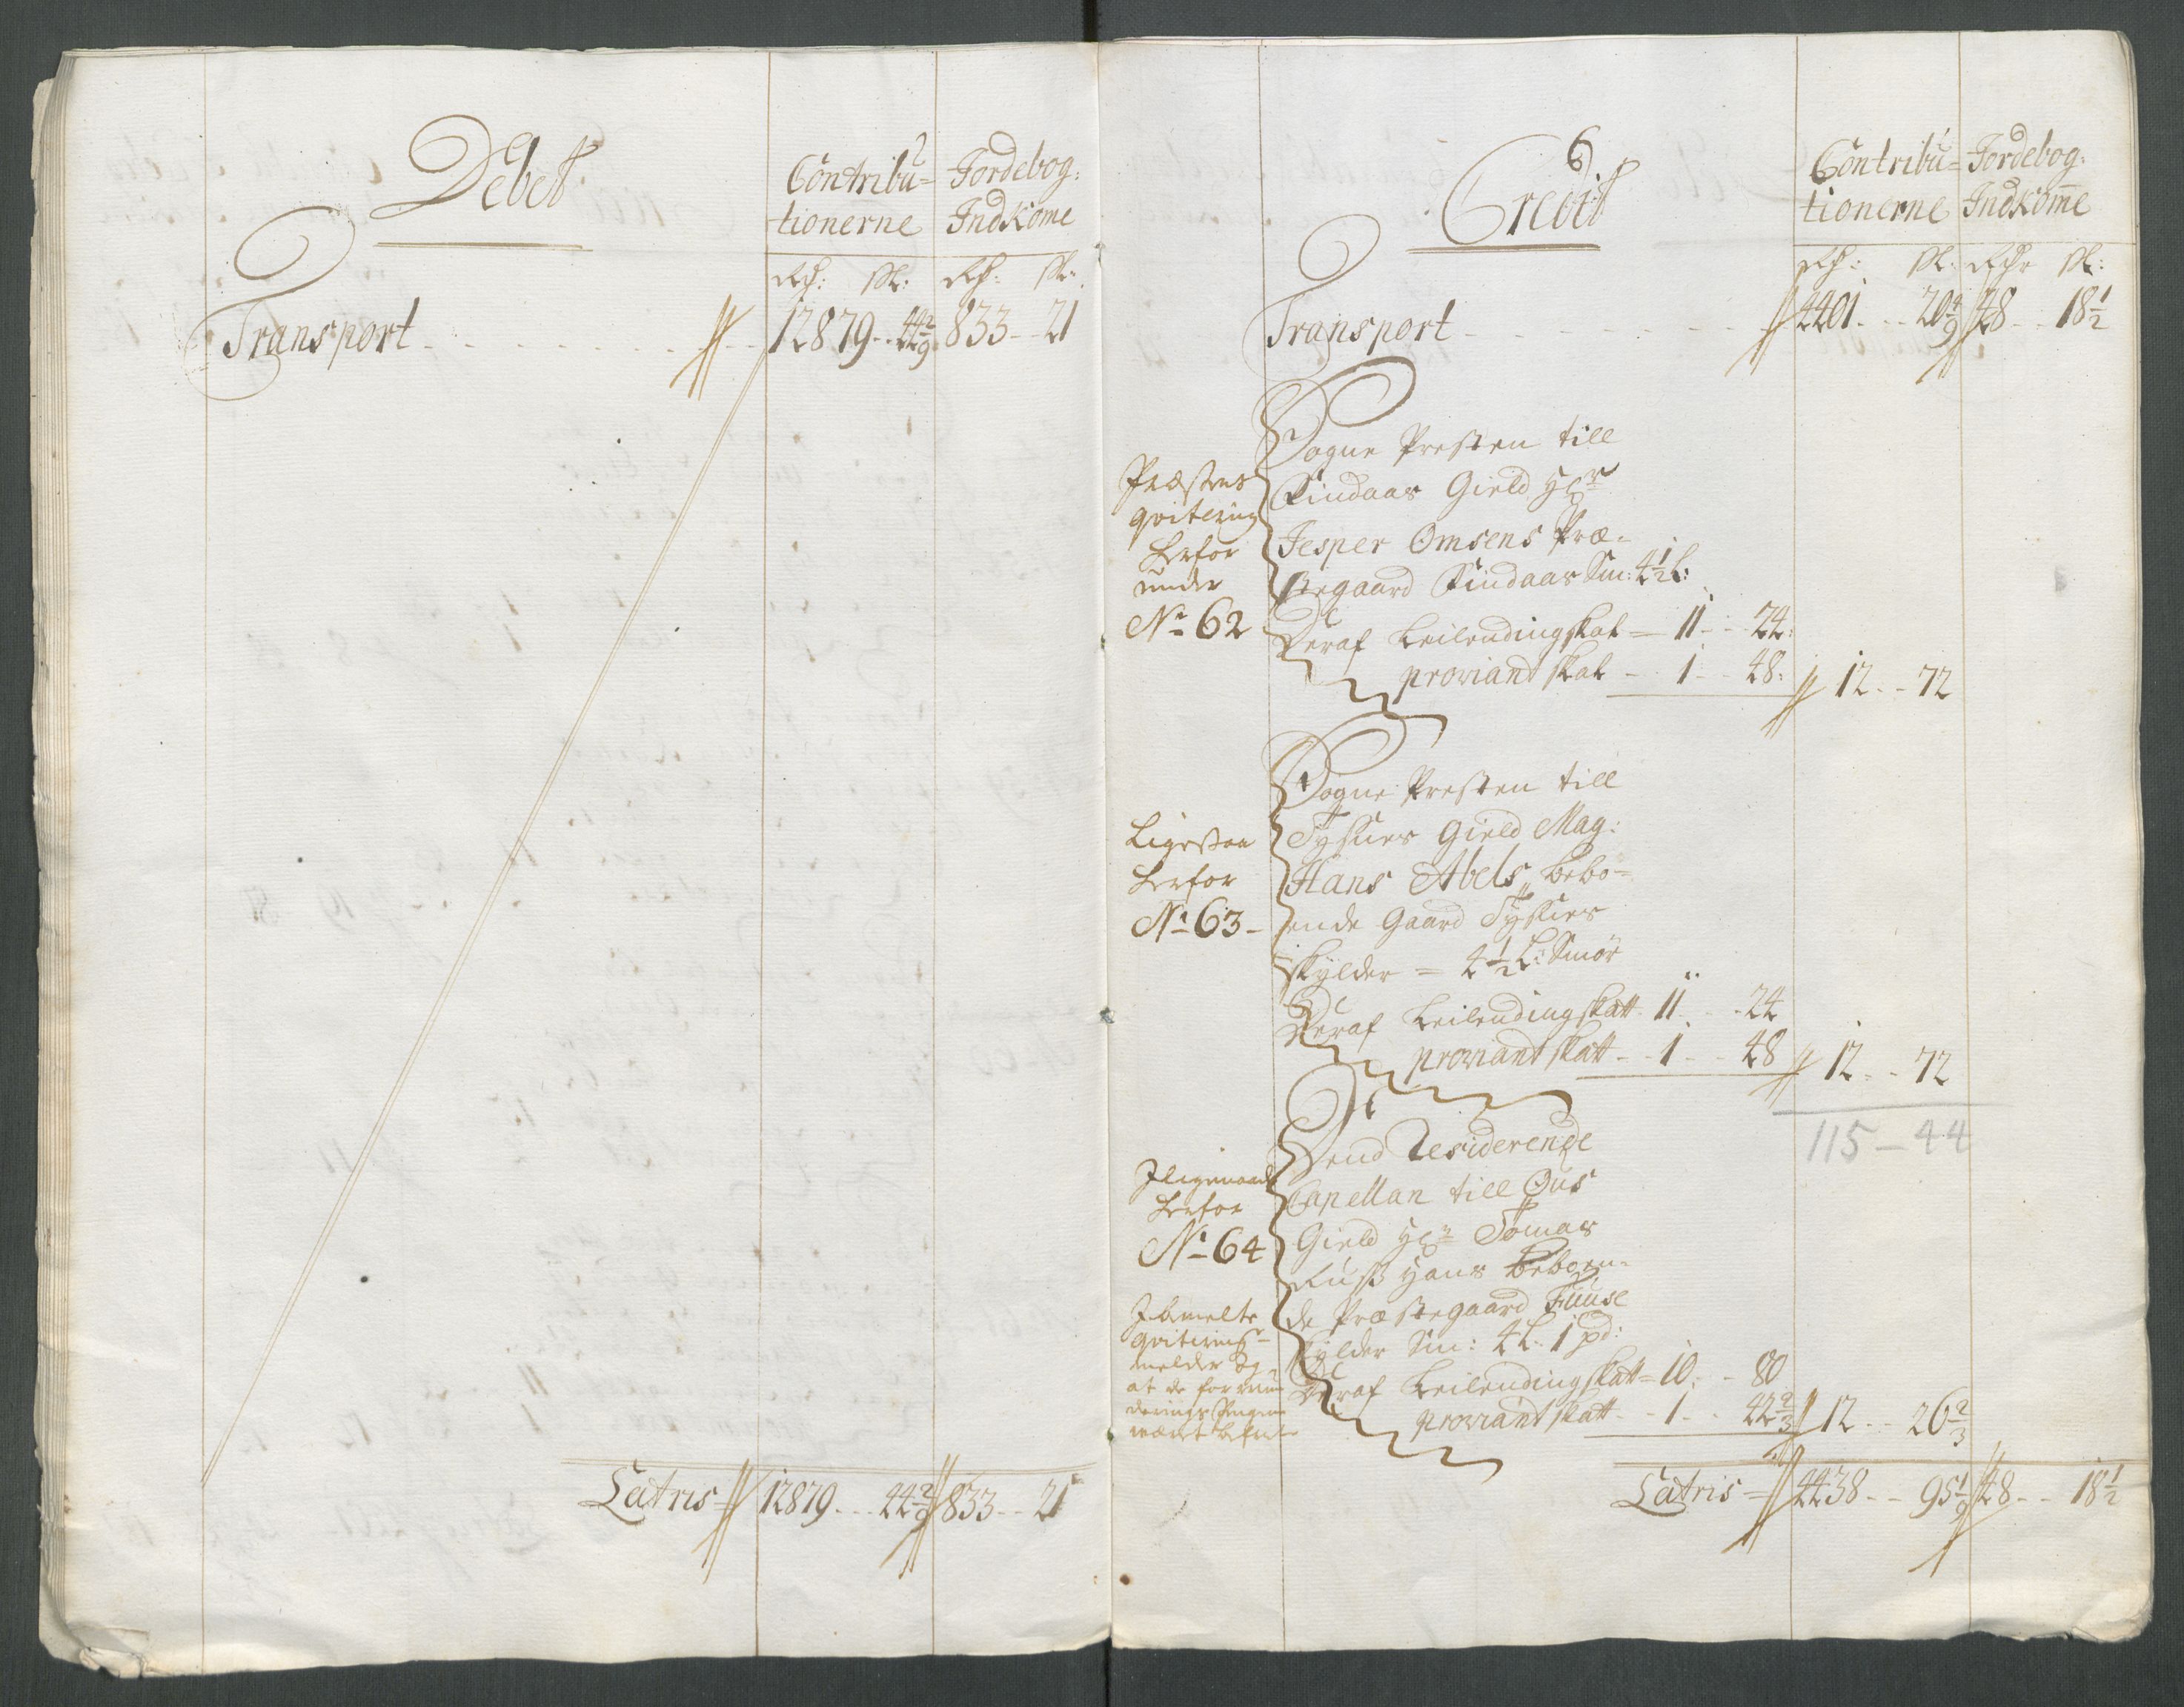 Debet
Contribu=
tionerne
Jordebog:
Indkome
Rd: sk: Rd: sk:
Transport 12879 44 2/9 833 21
Latris 12879 44 2/9 833 21
6
Credit
Contribu=
tionerne
Jordebog:
Indkome
Rd: sk: Rdr sk:
Transport 4401 20 4/9 48 18 1/2
Præstens
qvitering
herfor
under
No 62
Sogne Presten till
Findaas Gield Hr
Jesper Omsens Præ-
stegaard Findaas Sm: 4 1/2 L:
Deraf Leilendingskat 11 24:
proviantskat 1 48: 12 72
Ligesaa
herfor
No 63
Sogne Presten till
Tysnes Gield Mag:
Hans Abels bebo=
ende Gaard Tysnes
skylder = 4 1/2 L: Smør
Deraf Leilendingskatt 11 24
proviantskatt 1 48 12 72
115 - 44
herfor
No 64
Dend Residerende
Capellan till Ous
Gield Hr Tomas
hans beboen-
de Præstegaard Fuuse
skylder Sm: 4 L. 1 pd:
Deraf Leilendingskatt 10 80
proviantskatt 1 42 2/3 12 26 2/3
melder og
at de
Latris 4438 95 1/9 48 18 1/2